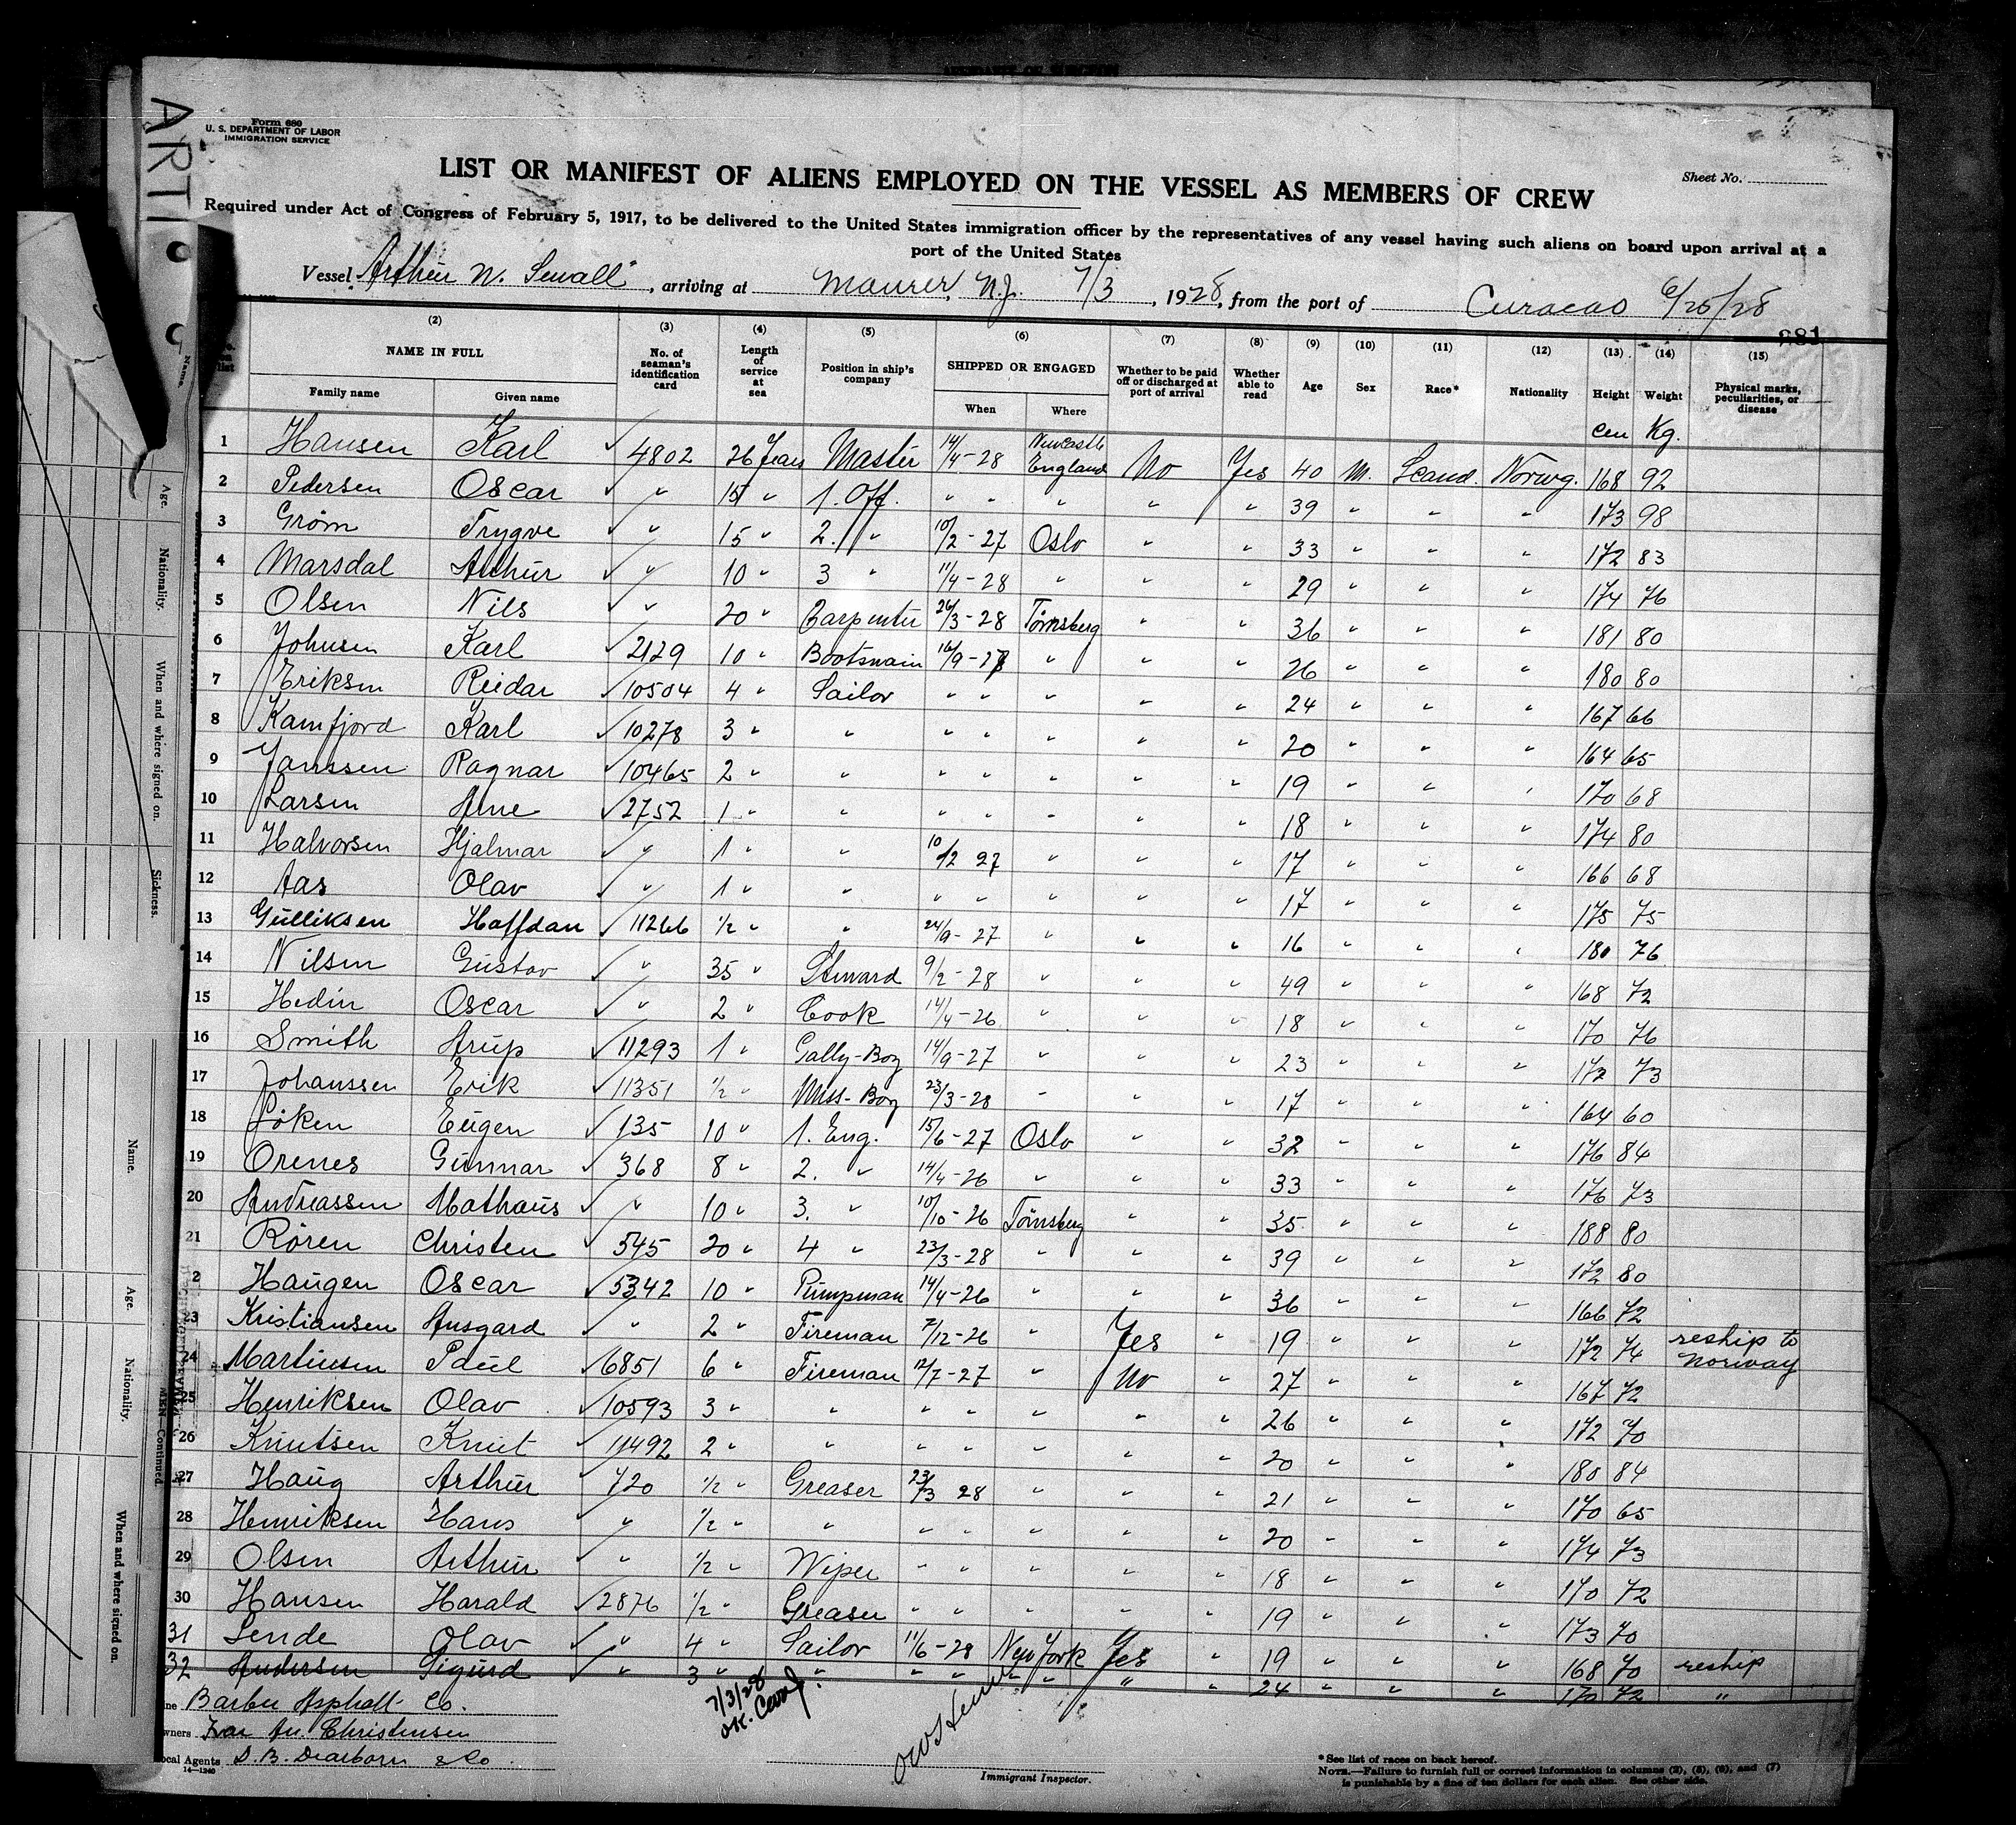 Form 680
U. S. DEPARTMENT OF LABOR
IMMIGRATION SERVICE
ARTI
LIST OR MANIFEST OF ALIENS EMPLOYED ON THE VESSEL AS MEMBERS OF CREW
Sheet No.
Required under Act of Congress of February 5, 1917, to be delivered to the United States immigration officer by the representatives of any vessel having such aliens on board upon arrival at a
port of the United States
Vessel Arthur W. Sewall, arriving at Maurer, N.J. 7/3, 1928, from the port of Curacao 6/25/28
(2) (3) (4) (5) (6) (7) (8) (9) (10) (11) (12) (13) (14) (15)
list NAME IN FULL No. of seaman's identification card Length of service at sea Position in ship's company SHIPPED OR ENGAGED Whether to be paid off or discharged at port of arrival Whether able to read Age Sex Race* Nationality Height Weight Physical marks, peculiarities, or disease
Family name Given name When Where
Cen Kg.
1 Hansen Karl ✓ 4802 26 Years Master 14/4-28 Newcastle England No Yes 40 M. Scand. Norwg. 168 92
2 Pedersen Oscar ✓ " 15 " 1. Off. " " " " " 39 " " " 173 98
3 Grøm Trygve ✓ " 15 " 2. " 10/2-27 Oslo " " 33 " " " 172 83
4 Marsdal Arthur ✓ " 10 " 3 " 11/4-28 " " " 29 " " " 174 76
5 Olsen Nils ✓ " 20 " Carpenter 26/3-28 Tönsberg " " 36 " " " 181 80
6 Johnsen Karl ✓ 2129 10 " Bootsmain 16/9-27 " " " 26 " " " 180 80
7 Eriksen Reidar ✓ 10504 4 " Sailor " " " " " 24 " " " 167 66
8 Kamfjord Karl ✓ 10278 3 " " " " " " " 20 " " " 164 65
9 Janssen Ragnar ✓ 10465 2 " " " " " " " 19 " " " 170 68
10 Larsen Arne ✓ 2752 1 " " " " " " " 18 " " " 174 80
11 Halvorsen Hjalmar ✓ " 1 " " 10/12 27 " " " 17 " " " 166 68
12 Aas Olav ✓ " 1 " " " " " " " 17 " " " 175 75
13 Gulliksen Haffdan ✓ 11266 1/2 " " 24/9-27 " " " 16 " " " 180 76
14 Nilsen Gustav ✓ " 35 " Steward 9/2-28 " " " 49 " " " 168 72
15 Hedin Oscar ✓ " 2 " Cook 14/4-26 " " " 18 " " " 170 76
16 Smith Arup ✓ 11293 1 " Gally-Boy 14/9-27 " " " 23 " " " 172 73
17 Johanssen Erik ✓ 11351 1/2 " Mess-Boy 23/3-28 " " " 17 " " " 164 60
18 Löken Eugen ✓ 135 10 " 1. Eng. 15/6-27 Oslo " " 32 " " " 176 84
19 Orenes Gunnar ✓ 368 8 " 2. " 14/4-26 " " " 33 " " " 176 73
20 Andreassen Mathaus ✓ " 10 " 3. " 10/10-26 Tönsberg " " 35 " " " 188 80
21 Rören Christen ✓ 545 20 " 4 " 23/3-28 " " " 39 " " " 172 80
2 Haugen Oscar ✓ 5342 10 " Pumpman 14/4-26 " " " 36 " " " 166 72
23 Kristiansen Ansgard ✓ " 2 " Fireman 7/12-26 " Yes " 19 " " " 172 74 reship to Norway
24 Martinsen Paul ✓ 6851 6 " Fireman 12/7-27 " No " 27 " " " 167 72
25 Henriksen Olav ✓ 10593 3 " " " " " " " 26 " " " 172 70
26 Knutsen Knut ✓ 11492 2 " " " " " " " 20 " " " 180 84
27 Haug Arthur ✓ 720 1/2 " Greaser 23/3 28 " " " 21 " " " 170 65
28 Henriksen Hans ✓ " 1/2 " " " " " " " 20 " " " 174 73
29 Olsen Arthur ✓ " 1/2 " Wiper " " " " " 18 " " " 170 72
30 Hansen Harald ✓ 2876 1/2 " Greaser " " " " " 19 " " " 173 70
31 Lende Olav ✓ " 4 " Sailor 11/6-28 New York Yes " 19 " " " 168 70 reship
32 Andersen Sigurd ✓ " 3 " " " " " " " 24 " " " 170 72 "
Barber Asphalt Co.
7/3/28
wners Ivar An. Christensen
ocal Agents D. B. Dearborn & Co.
14—1240
Immigrant Inspector.
*See list of races on back hereof.
NOTE.—Failure to furnish full or correct information in columns (2), (5), (6), and (7)
is punishable by a fine of ten dollars for each alien. See other side.
Name.
Age.
Nationality.
When and where signed on.
Sickness.
Name.
Age.
Nationality.
When and where signed on.
MEN Continued.